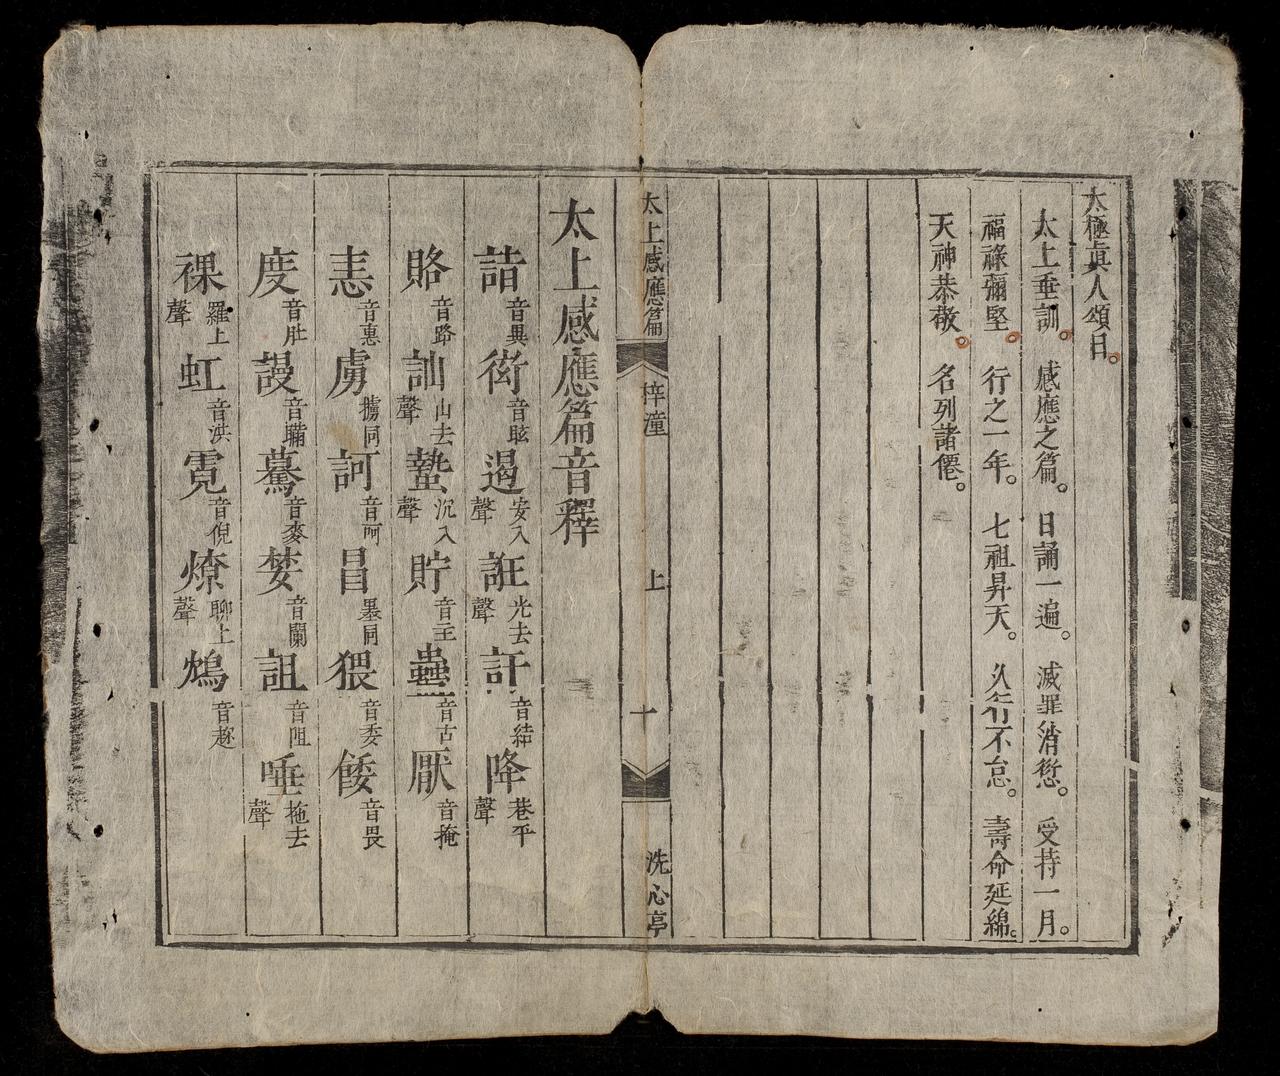 太極眞人頌曰。
太上垂訓。感應之篇。日誦一遍。滅罪消愆。受持一月。
福祿彌堅。行之一年。七祖昇天。久行不怠。壽命延綿。
天神恭敬。名列諸僊。
太上感應篇 梓潼 上 十 洗心亭
太上感應篇音釋
詰音異 衒音眩 遏安入聲 誑光去聲 訐音結 降巷平聲
賂音路 訕山去聲 蟄沉入聲 貯音主 蠱音古 厭音掩
恚音惠 虜擄同 訶音呵 冒墨同 猥音委 餧音畏
度音肚 謾音瞞 驀音麥 婪音闌 詛音阻 唾拖去聲
裸羅上聲 虹音洪 霓音倪 燎聊上聲 鴆音